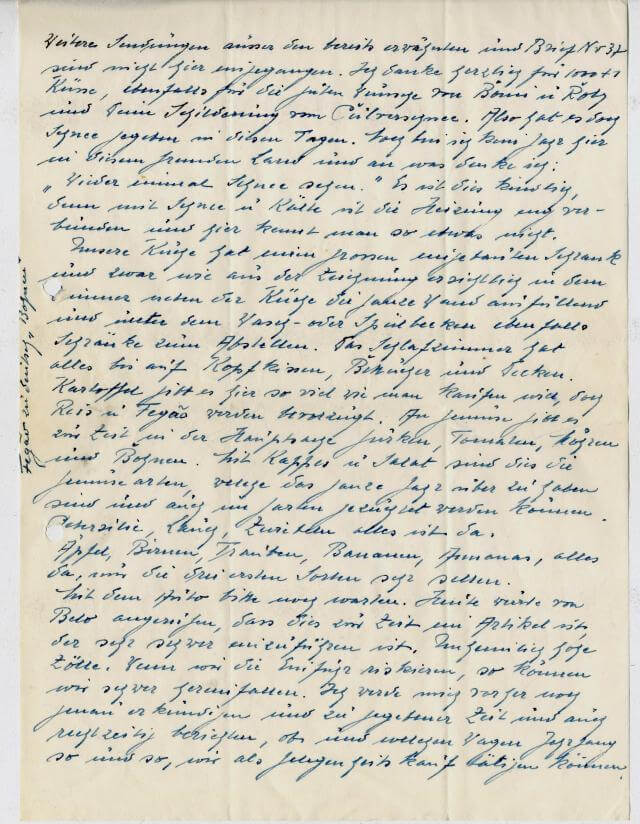 Weitere Sendungen ausser den bereits erwähnten und Brief Nr 37
sind nicht hier eingegangen. Ich danke herzlich für 1000+1
Küsse, ebenfalls für die guten Wünsche von und
und Dein Schilderung vom Pulverschnee. Also hat es doch
Schnee gegeben in diesen Tagen. Noch bin ich kein Jahr hier
in diesem fremden Land und an was denke ich:
„Wieder einmal Schnee sehen." Es ist dies kindlich,
denn mit Schnee u Kälte ist die Heizung eng ver-
bunden und hier kennt man so etwas nicht.
Unsere Küche hat einen grossen eingebauten Schrank
und zwar wie aus der Zeichnung ersichtlich in dem
Zimmer neben der Küche die ganze Wand ausfüllend
und unter dem Wasch- oder Spülbecken ebenfalls
Schränke zum Abstellen. Das Schlafzimmer hat
alles bis auf Kopfkissen, Bezüge und Decken.
Kartoffel gibt es hier so viel wie man kaufen will, doch
Reis u Fegão werden bevorzugt. An Gemüse gibt es
zur Zeit in der Hauptsache Gurken, Tomaten, Möhren
und Bohnen. Mit Kappes u Salat sind dies die
Gemüsearten, welche das ganze Jahr über zu haben
sind und auch im Garten gezüchtet werden können.
Petersilie, Lauch, Zwiebeln alles ist da.
Äpfel, Birnen, Trauben, Bananen, Ananas, alles
da, nur die drei ersten Sorten sehr selten.
Mit dem Auto bitte noch warten. Heute wurde von
Belo angerufen, dass dies zur Zeit ein Artikel ist,
der sehr schwer einzuführen ist. Unheimlich hohe
Zölle. Wenn wir die Einfuhr riskieren, so können
wir schwer hereinfallen. Ich werde mich vorher noch
genau erkundigen und zu gegebener Zeit und auch
rechtzeitig berichten, ob und welchen Wagen Jahrgang
so und so, wir als Gelegenheitskauf tätigen können.
Fegão zu deutsch „Bohnen"